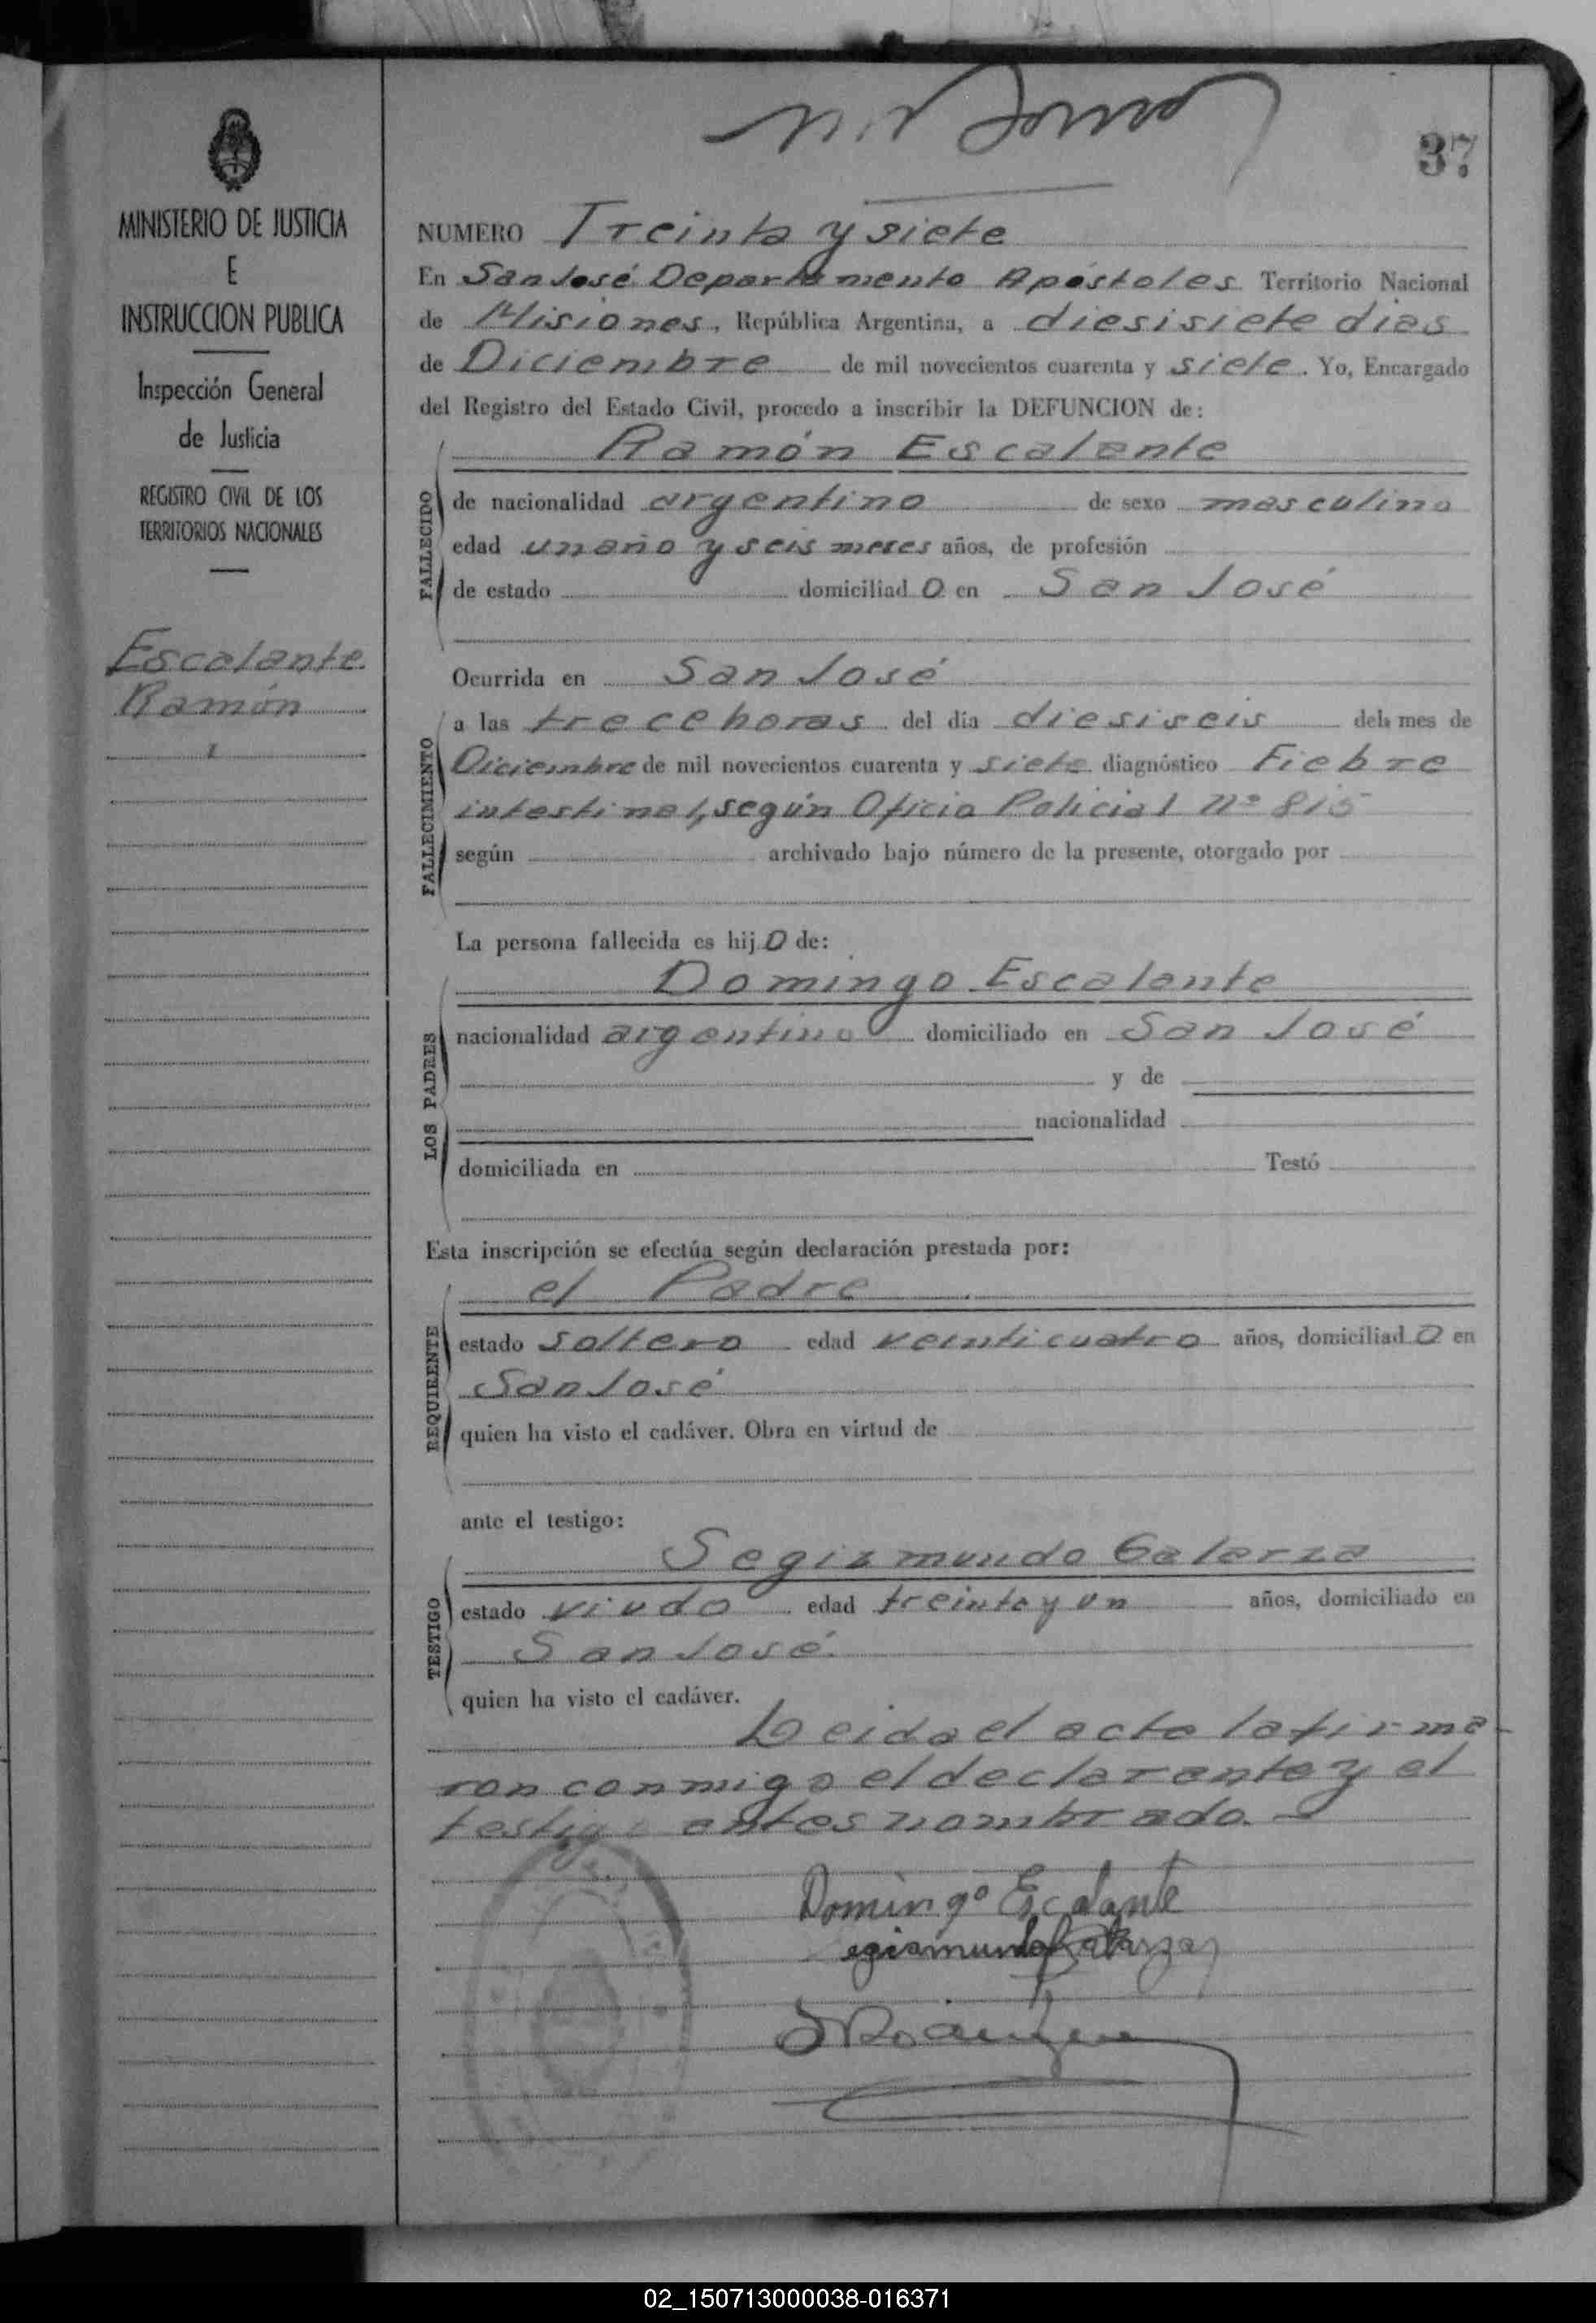 37
MINISTERIO DE JUSTICIA
E
INSTRUCCION PUBLICA
Inspección General
de Justicia
REGISTRO CIVIL DE LOS
TERRITORIOS NACIONALES
Escalante
Ramón
NUMERO Treinta y siete
En San José Departamento Apóstoles Territorio Nacional
de Misiones, República Argentina, a diesisiete dias
de Diciembre de mil novecientos cuarenta y siete. Yo, Encargado
del Registro del Estado Civil, procedo a inscribir la DEFUNCION de:
Ramón Escalante
FALLECIDO
de nacionalidad argentino de sexo masculino
edad un año y seis meses años, de profesión
de estado domiciliad o en San José
Ocurrida en San José
FALLECIMIENTO
a las trece horas del día diesiseis del mes de
Diciembre de mil novecientos cuarenta y siete diagnóstico Fiebre
intestinal, según Oficio Policial nº 815
según archivado bajo número de la presente, otorgado por
La persona fallecida es hij o de:
Domingo Escalante
LOS PADRES
nacionalidad argentino domiciliado en San José
y de
nacionalidad
domiciliada en Testó
Esta inscripción se efectúa según declaración prestada por:
el Padre
REQUIRENTE
estado soltero edad veinticuatro años, domiciliad o en
San José
quien ha visto el cadáver. Obra en virtud de
ante el testigo:
Segismundo Galarza
TESTIGO
estado viudo edad treinta y un años, domiciliado en
San José.
quien ha visto el cadáver.
Leida el acta la firma-
ron conmigo el declarante y el
testigo antes nombrado.-
Domingo Escalante
Segismundo Galarza
02_150713000038-016371